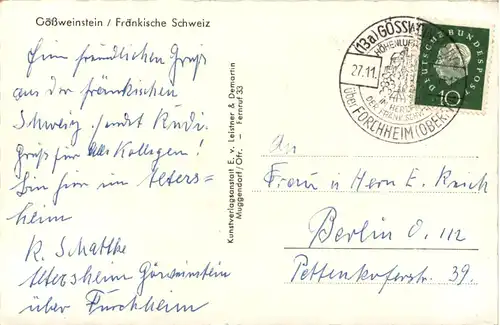 Gößweinstein / Fränkische Schweiz
Einen freundlichen Gruß
aus der fränkischen
Schweiz sendet Rudi.
Gruß für alle Kollegen!
Bin hier im Alters-
heim
R. Schattke
Altersheim Gösweinstein
über Furchheim
Kunstverlagsanstalt E. v. Leistner & Demartin
Muggendorf/Ofr. – Fernruf 33
(13a) GÖSSW
HÖHENLUFT
27.11.
HERZ
DER FRÄNK. SCHWEIZ
über FORCHHEIM (OBERFR.
DEUTSCHE BUNDESPOST
10
An
Frau u Herrn E. Reich
Berlin O. 112
Pettenkoferstr. 39.